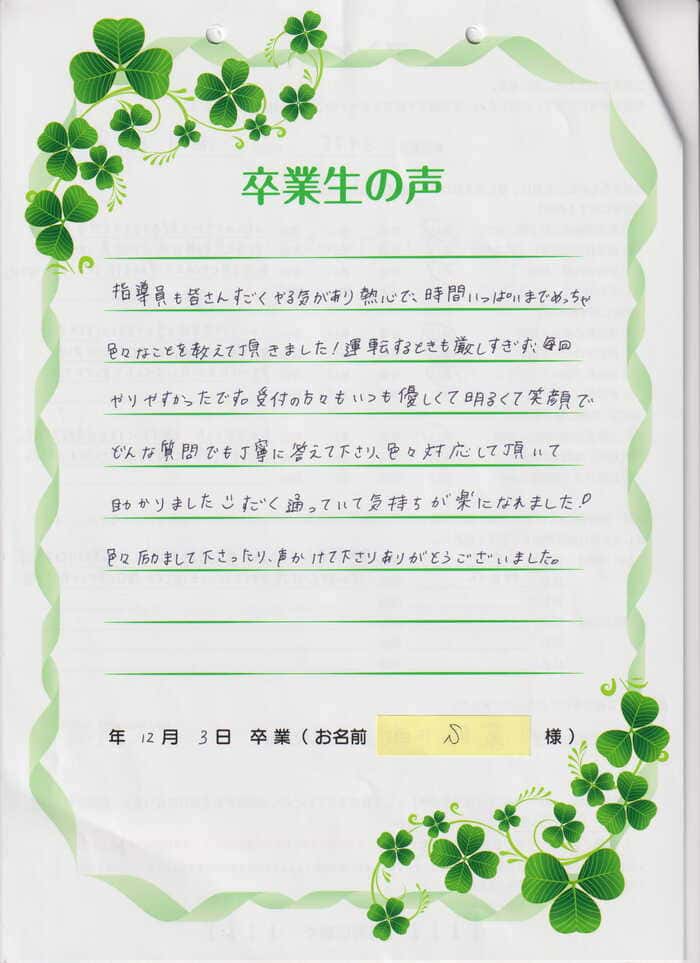 卒業生の声
指導員も皆さんすごくやる気があり熱心で、時間いっぱいまでめっちゃ
色々なことを教えて頂きました!運転するときも厳しすぎず、毎回
やりやすかったです。受付の方々もいつも優しくて明るくて笑顔で
どんな質問でも丁寧に答えて下さり、色々対応して頂いて
助かりました すごく通っていて気持ちが楽になれました!
色々励まして下さったり、声かけて下さりありがとうございました。
年 12月 3日 卒業(お名前 S 様)